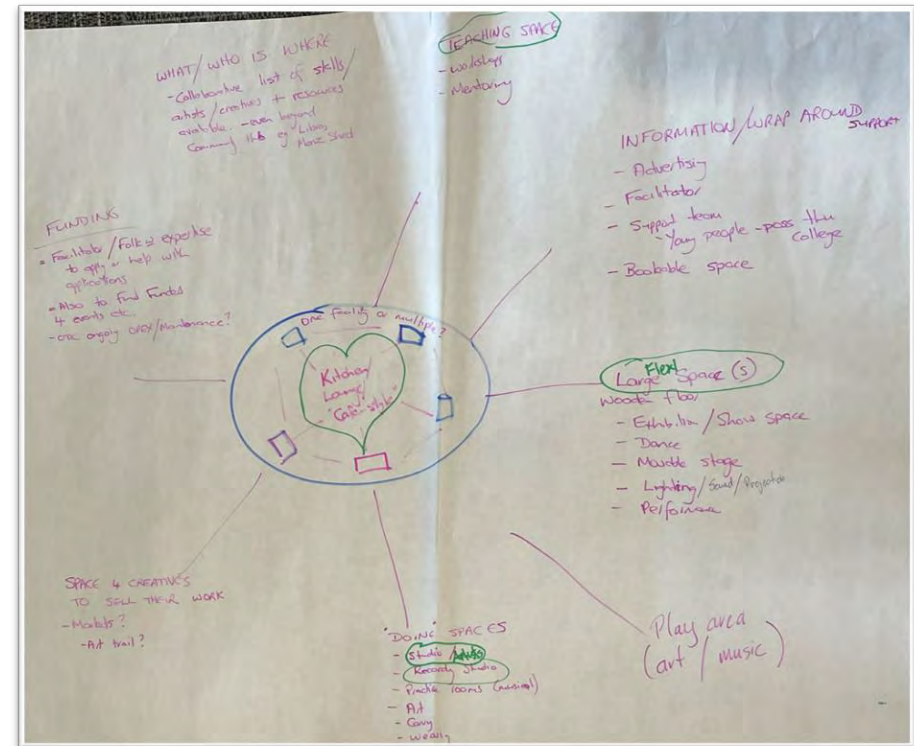 WHAT/WHO IS WHERE
- Collaborative list of skills/
artists/creatives + resources
available - even beyond
Community Hub eg Library
Shed
TEACHING SPACE
- Workshops
- Mentoring
INFORMATION/WRAP AROUND
SUPPORT
- Advertising
- Facilitator
- Support team
Young people - pass thru
College
- Bookable space
FUNDING
- Facilitator/Folk expertise
to apply or help with
applications
- Also to Fund Funds
4 events etc.
ongoing OPEX/Maintenance?
One facility or multiple?
Kitchen/
Lounge/
"Cafe-style"
Flexi
Large Space (S)
Wooden floor
- Exhibition/Show space
- Dance
- Movable stage
- Lighting/Sound/Projection
- Performance
SPACE 4 CREATIVES
TO SELL THEIR WORK
- Markets?
- Art trail?
"DOING" SPACES
- Studio /
- Recording Studio
- Practice rooms (musical)
- Art
- Weaving
Play area
(art / music)